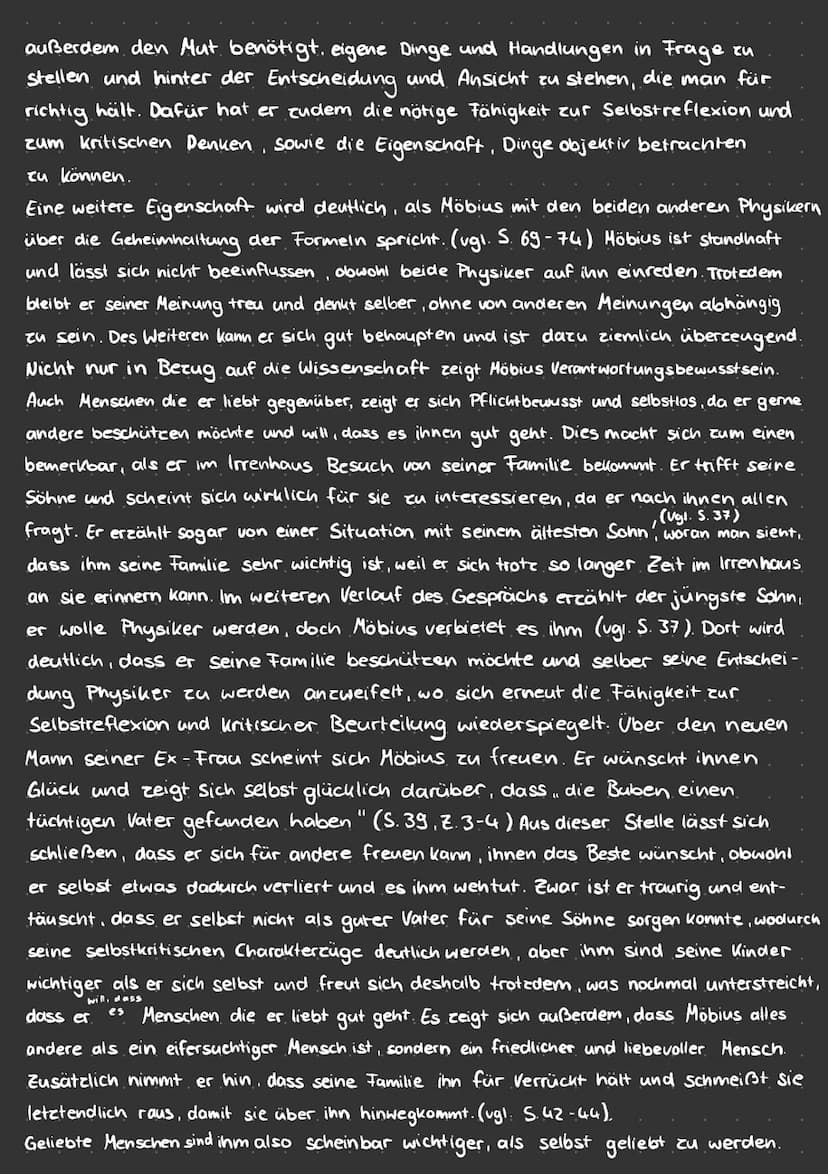 außerdem den Mut benötigt, eigene Dinge und Handlungen in Frage zu
stellen und hinter der Entscheidung und Ansicht zu stehen, die man für
richtig hält. Dafür hat er zudem die nötige Fähigkeit zur Selbstreflexion und
zum kritischen Denken, sowie die Eigenschaft, Dinge objektiv betrachten
zu können.
Eine weitere Eigenschaft wird deutlich, als Möbius mit den beiden anderen Physikern
über die Geheimhaltung der Formeln spricht. (vgl. S. 69-74) Möbius ist standhaft
und lässt sich nicht beeinflussen, obwohl beide Physiker auf ihn einreden. Trotzdem
bleibt er seiner Meinung treu und denkt selber, ohne von anderen Meinungen abhängig
zu sein. Des Weiteren kann er sich gut behaupten und ist dazu ziemlich überzeugend.
Nicht nur in Bezug auf die Wissenschaft zeigt Möbius Verantwortungsbewusstsein.
Auch Menschen die er liebt gegenüber, zeigt er sich Pflichtbewusst und selbstlos, da er gerne
andere beschützen möchte und will, dass es ihnen gut geht. Dies macht sich zum einen
bemerkbar, als er im Irrenhaus Besuch von seiner Familie bekommt. Er trifft seine
Söhne und scheint sich wirklich für sie zu interessieren, da er nach ihnen allen
fragt. Er erzählt sogar von einer Situation mit seinem ältesten Sohn (vgl. S. 37), woran man sieht,
dass ihm seine Familie sehr wichtig ist, weil er sich trotz so langer Zeit im Irrenhaus
an sie erinnern kann. Im weiteren Verlauf des Gesprächs erzählt der jüngste Sohn,
er wolle Physiker werden, doch Möbius verbietet es ihm (vgl. S. 37). Dort wird
deutlich, dass er seine Familie beschützen möchte und selber seine Entschei-
dung Physiker zu werden anzweifelt, wo sich erneut die Fähigkeit zur
Selbstreflexion und kritischer Beurteilung wiederspiegelt. Über den neuen
Mann seiner Ex-Frau scheint sich Möbius zu freuen. Er wünscht ihnen
Glück und zeigt sich selbst glücklich darüber, dass „die Buben einen
tüchtigen Vater gefunden haben" (S. 39, Z. 3-4) Aus dieser Stelle lässt sich
schließen, dass er sich für andere freuen kann, ihnen das Beste wünscht, obwohl
er selbst etwas dadurch verliert und es ihm wehtut. Zwar ist er traurig und ent-
täuscht, dass er selbst nicht als guter Vater für seine Söhne sorgen konnte, wodurch
seine selbstkritischen Charakterzüge deutlich werden, aber ihm sind seine Kinder
wichtiger als er sich selbst und freut sich deshalb trotzdem, was nochmal unterstreicht,
dass er will, dass es Menschen die er liebt gut geht. Es zeigt sich außerdem, dass Möbius alles
andere als ein eifersuchtiger Mensch ist, sondern ein friedlicher und liebevoller Mensch.
Zusätzlich nimmt er hin, dass seine Familie ihn für Verrückt hält und schmeißt sie
letztendlich raus, damit sie über ihn hinwegkommt. (vgl. S. 42-44).
Geliebte Menschen sind ihm also scheinbar wichtiger, als selbst geliebt zu werden.